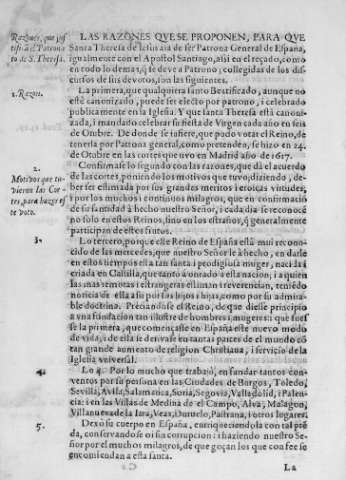 LAS RAZONES QVE SE PROPONEN, PARA QVE
Razones, que jus
tifican el Patrona
to de S. Theresa.
Santa Theresa de Iesus aia de ser Patrona General de España,
igualmente con el Apostol Santiago, assi en el reçado, como
en todo lo demas, que se deve a Patrono; collegidas de los dis
cursos de sus devotos, son las siguientes.
1. Razon.
La primera, que qualquiera santo Beatificado, aunque no
esté canonizado, puede ser electo por patrono, i celebrado
publicamente en la Iglesia. Y que santa Theresa esté canoni
zada, i mandado celebrar su fiesta de Virgen cada año en seis
de Otubre. De donde se infiere, que pudo votar el Reino, de
tenerla por Patrona general, como pretenden, se hizo en 24.
de Otubre en las cortes que uvo en Madrid año de 1617.
2.
Motivos que tu
vieron las Cor-
tes, para hazer es
te voto.
Confirmase lo segundo con las razones, que da el acuerdo
de las cortes, poniendo los motivos que tuvo, diziendo, de
ber ser estimada por sus grandes meritos i eroicas virtudes,
i por los muchos i continuos milagros, que en confirmació
de su santidad á hecho nuestro Señor, i cada dia se reconocé
no solo en estos Reinos, sino en los estraños, que generalmente
participan de estos frutos.
3.
Lo tercero, porque este Reino de España está mui reco
cido de las mercedes, que nuestro Señor le a hecho, en darle
en estos tiempos esta tan santa i prodigiosa muger, nacida i
criada en Castilla, que tanto a onrado a esta nacion, i a quien
las mas remotas i estrangeras estiman i reverencian, teniédo
noticia de ella assi por las hijos i hijas, como por su admira-
ble doctrina. Preciandose el Reino, de que diesse principio
a una fundacion tan illustre de hombres i mugeres: que fuesse
la primera, que començasse en España este nuevo modo
de vida, i de ella se derivase en tantas partes de el mundo có
tan grande aumento de religion Christiana, i servicio de la
Iglesia universal.
4.
Lo 4. Por lo mucho que trabajó, en fundar tantos con-
ventos por su persona en las Ciudades de Burgos, Toledo,
Sevilla, Avila, Salamanca, Soria, Segovia, Valladolid, i Palen-
cia: i en las Villas de Medina de el Campo, Alva, Malagon,
Villanueva de la Iara, Veas, Duruelo, Pastrana, i otros lugares.
5.
Dexó su cuerpo en España, enriqueciendola con tal pré
da, conservandose oi sin corrupcion: i haziendo nuestro Se-
ñor por el muchos milagros, de que goçan los que con fee se
encomiendan a esta santa.
La